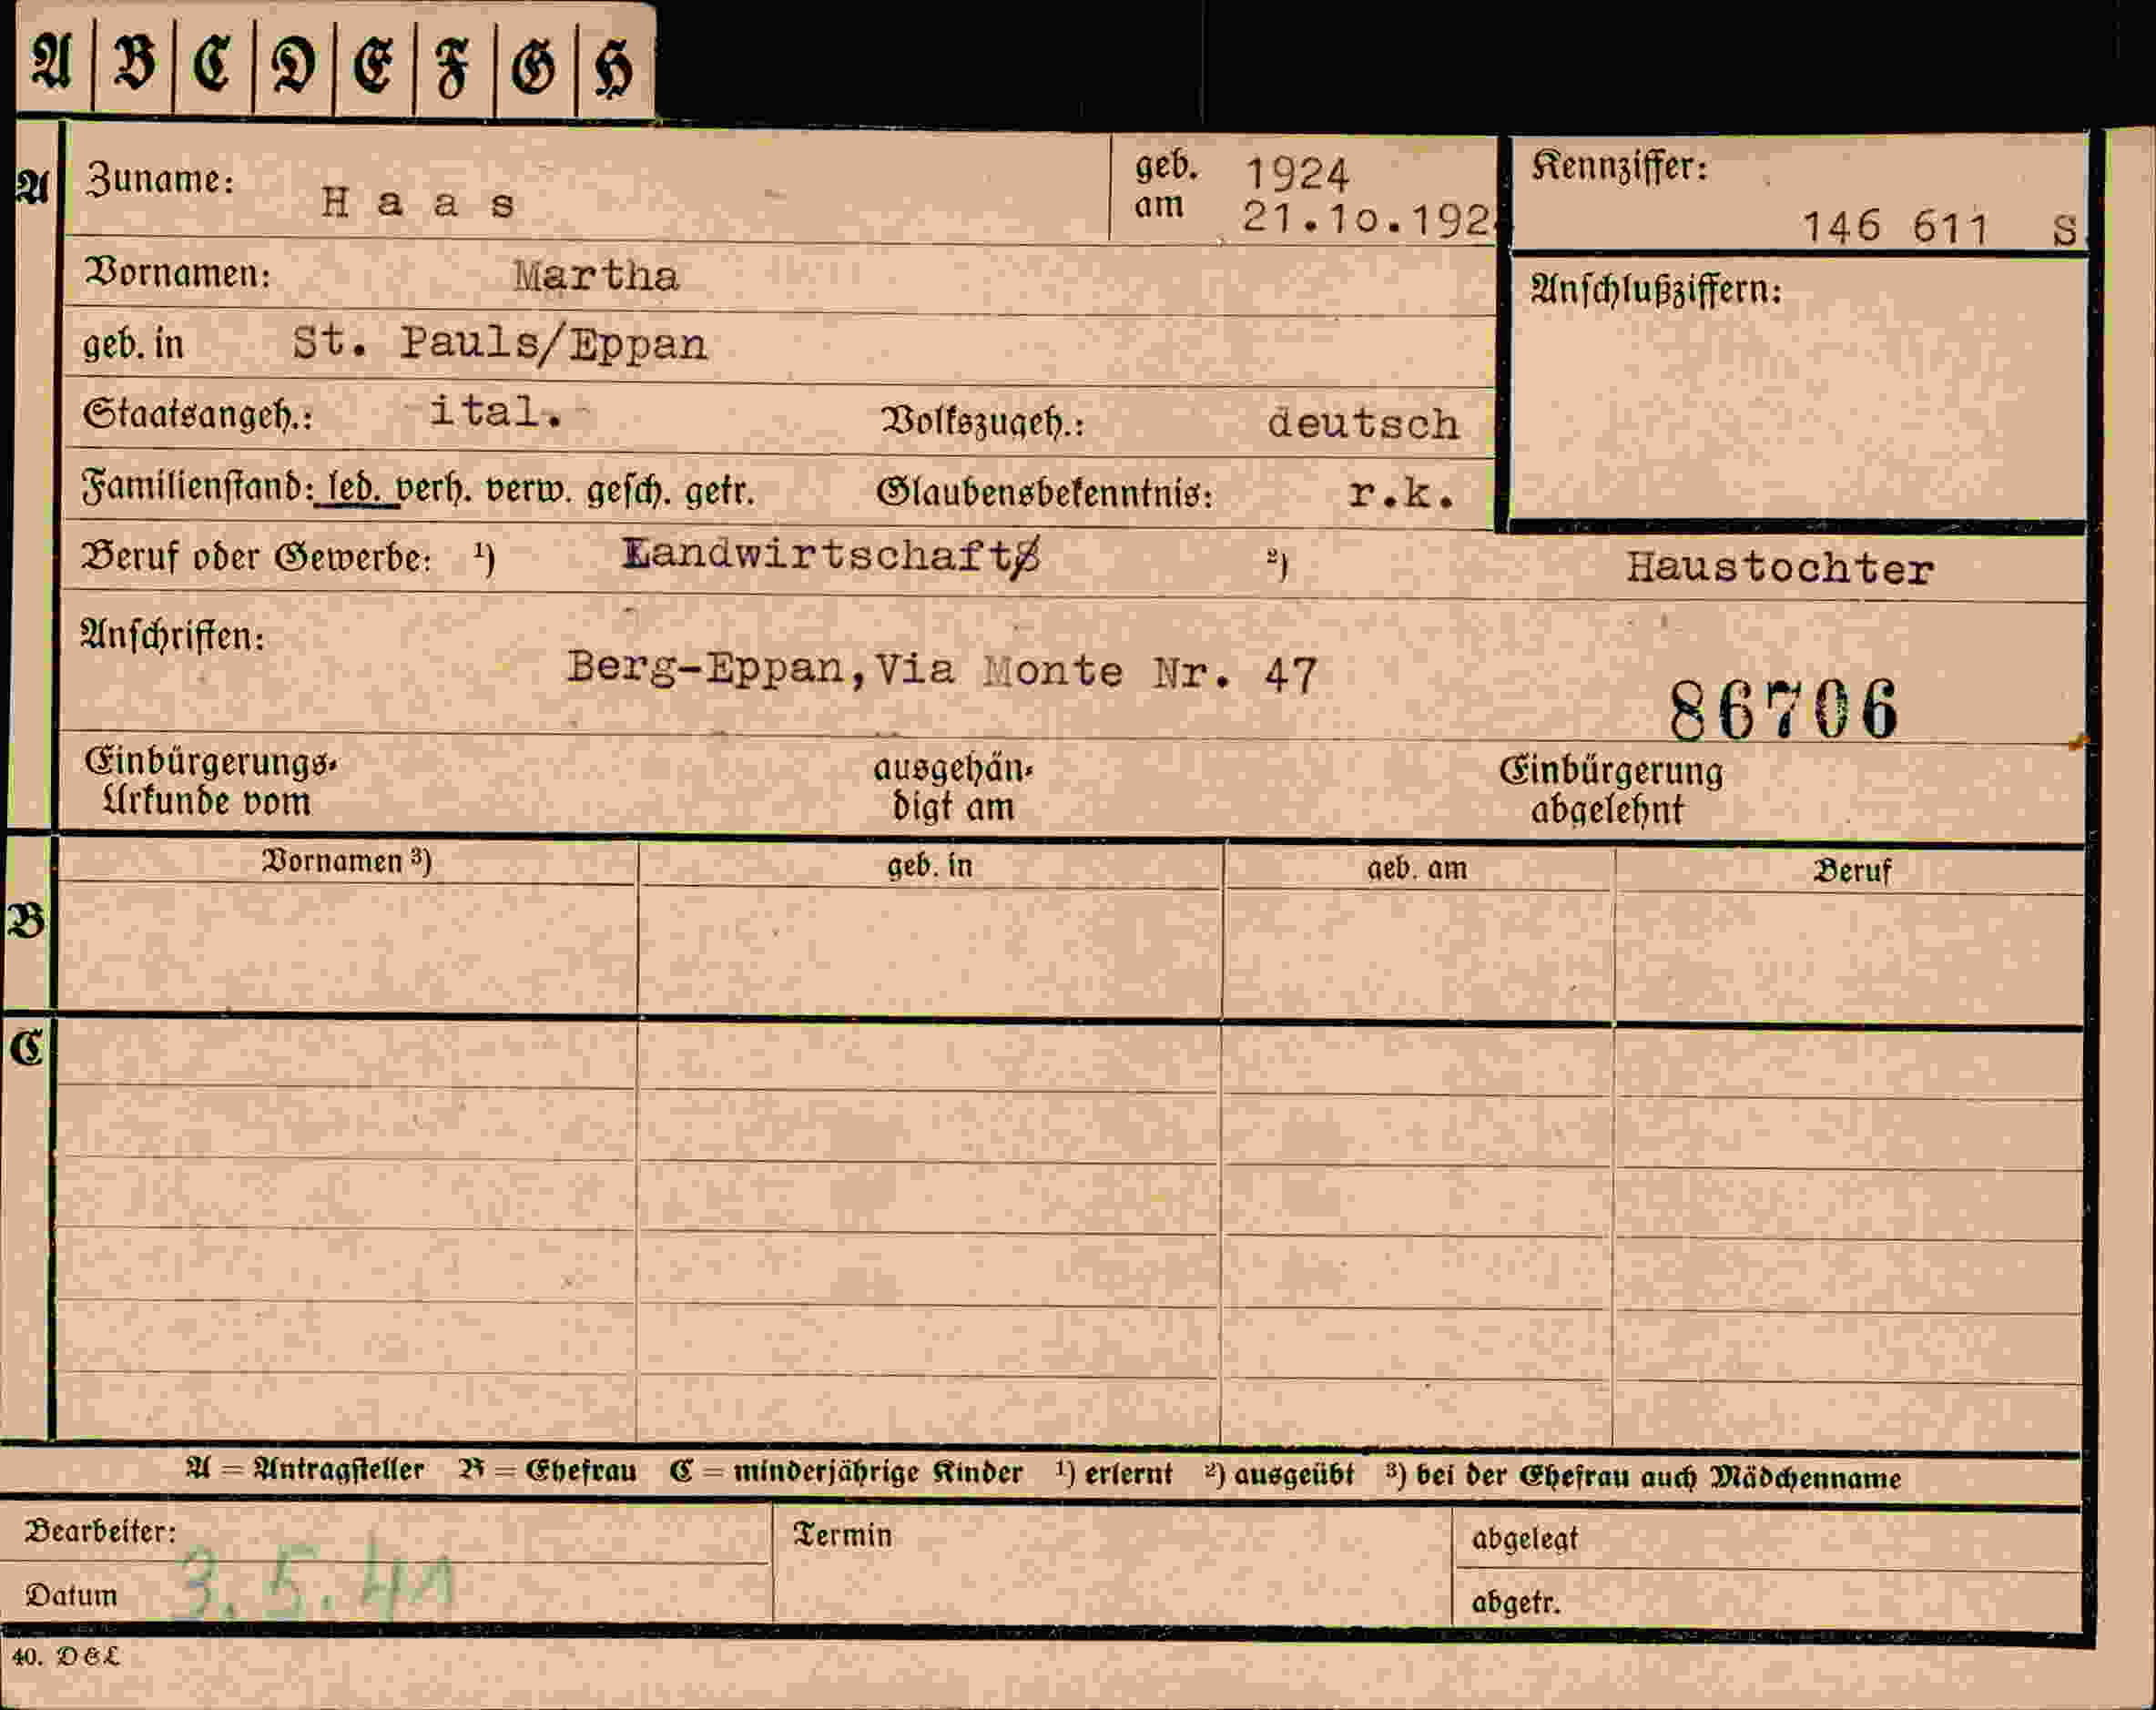 A B C D E F G H
A Zuname: Haas geb. am 1924 21.10.192 Kennziffer: 146 611 S
Vornamen: Martha Anschlußziffern:
geb. in St. Pauls/Eppan
Staatsangeh.: ital. Volkszugeh.: deutsch
Familienstand: led. verh. verw. gesch. getr. Glaubensbekenntnis: r.k.
Beruf oder Gewerbe: ¹) Landwirtschaft ²) Haustochter
Anschriften: Berg-Eppan,Via Monte Nr. 47
86706
Einbürgerungs-Urkunde vom ausgehändigt am Einbürgerung abgelehnt
Vornamen ³) geb. in geb. am Beruf
B
C
A = Antragsteller B = Ehefrau C = minderjährige Kinder ¹) erlernt ²) ausgeübt ³) bei der Ehefrau auch Mädchenname
Bearbeiter: Termin abgelegt
Datum 3.5.41 abgetr.
40. D&L